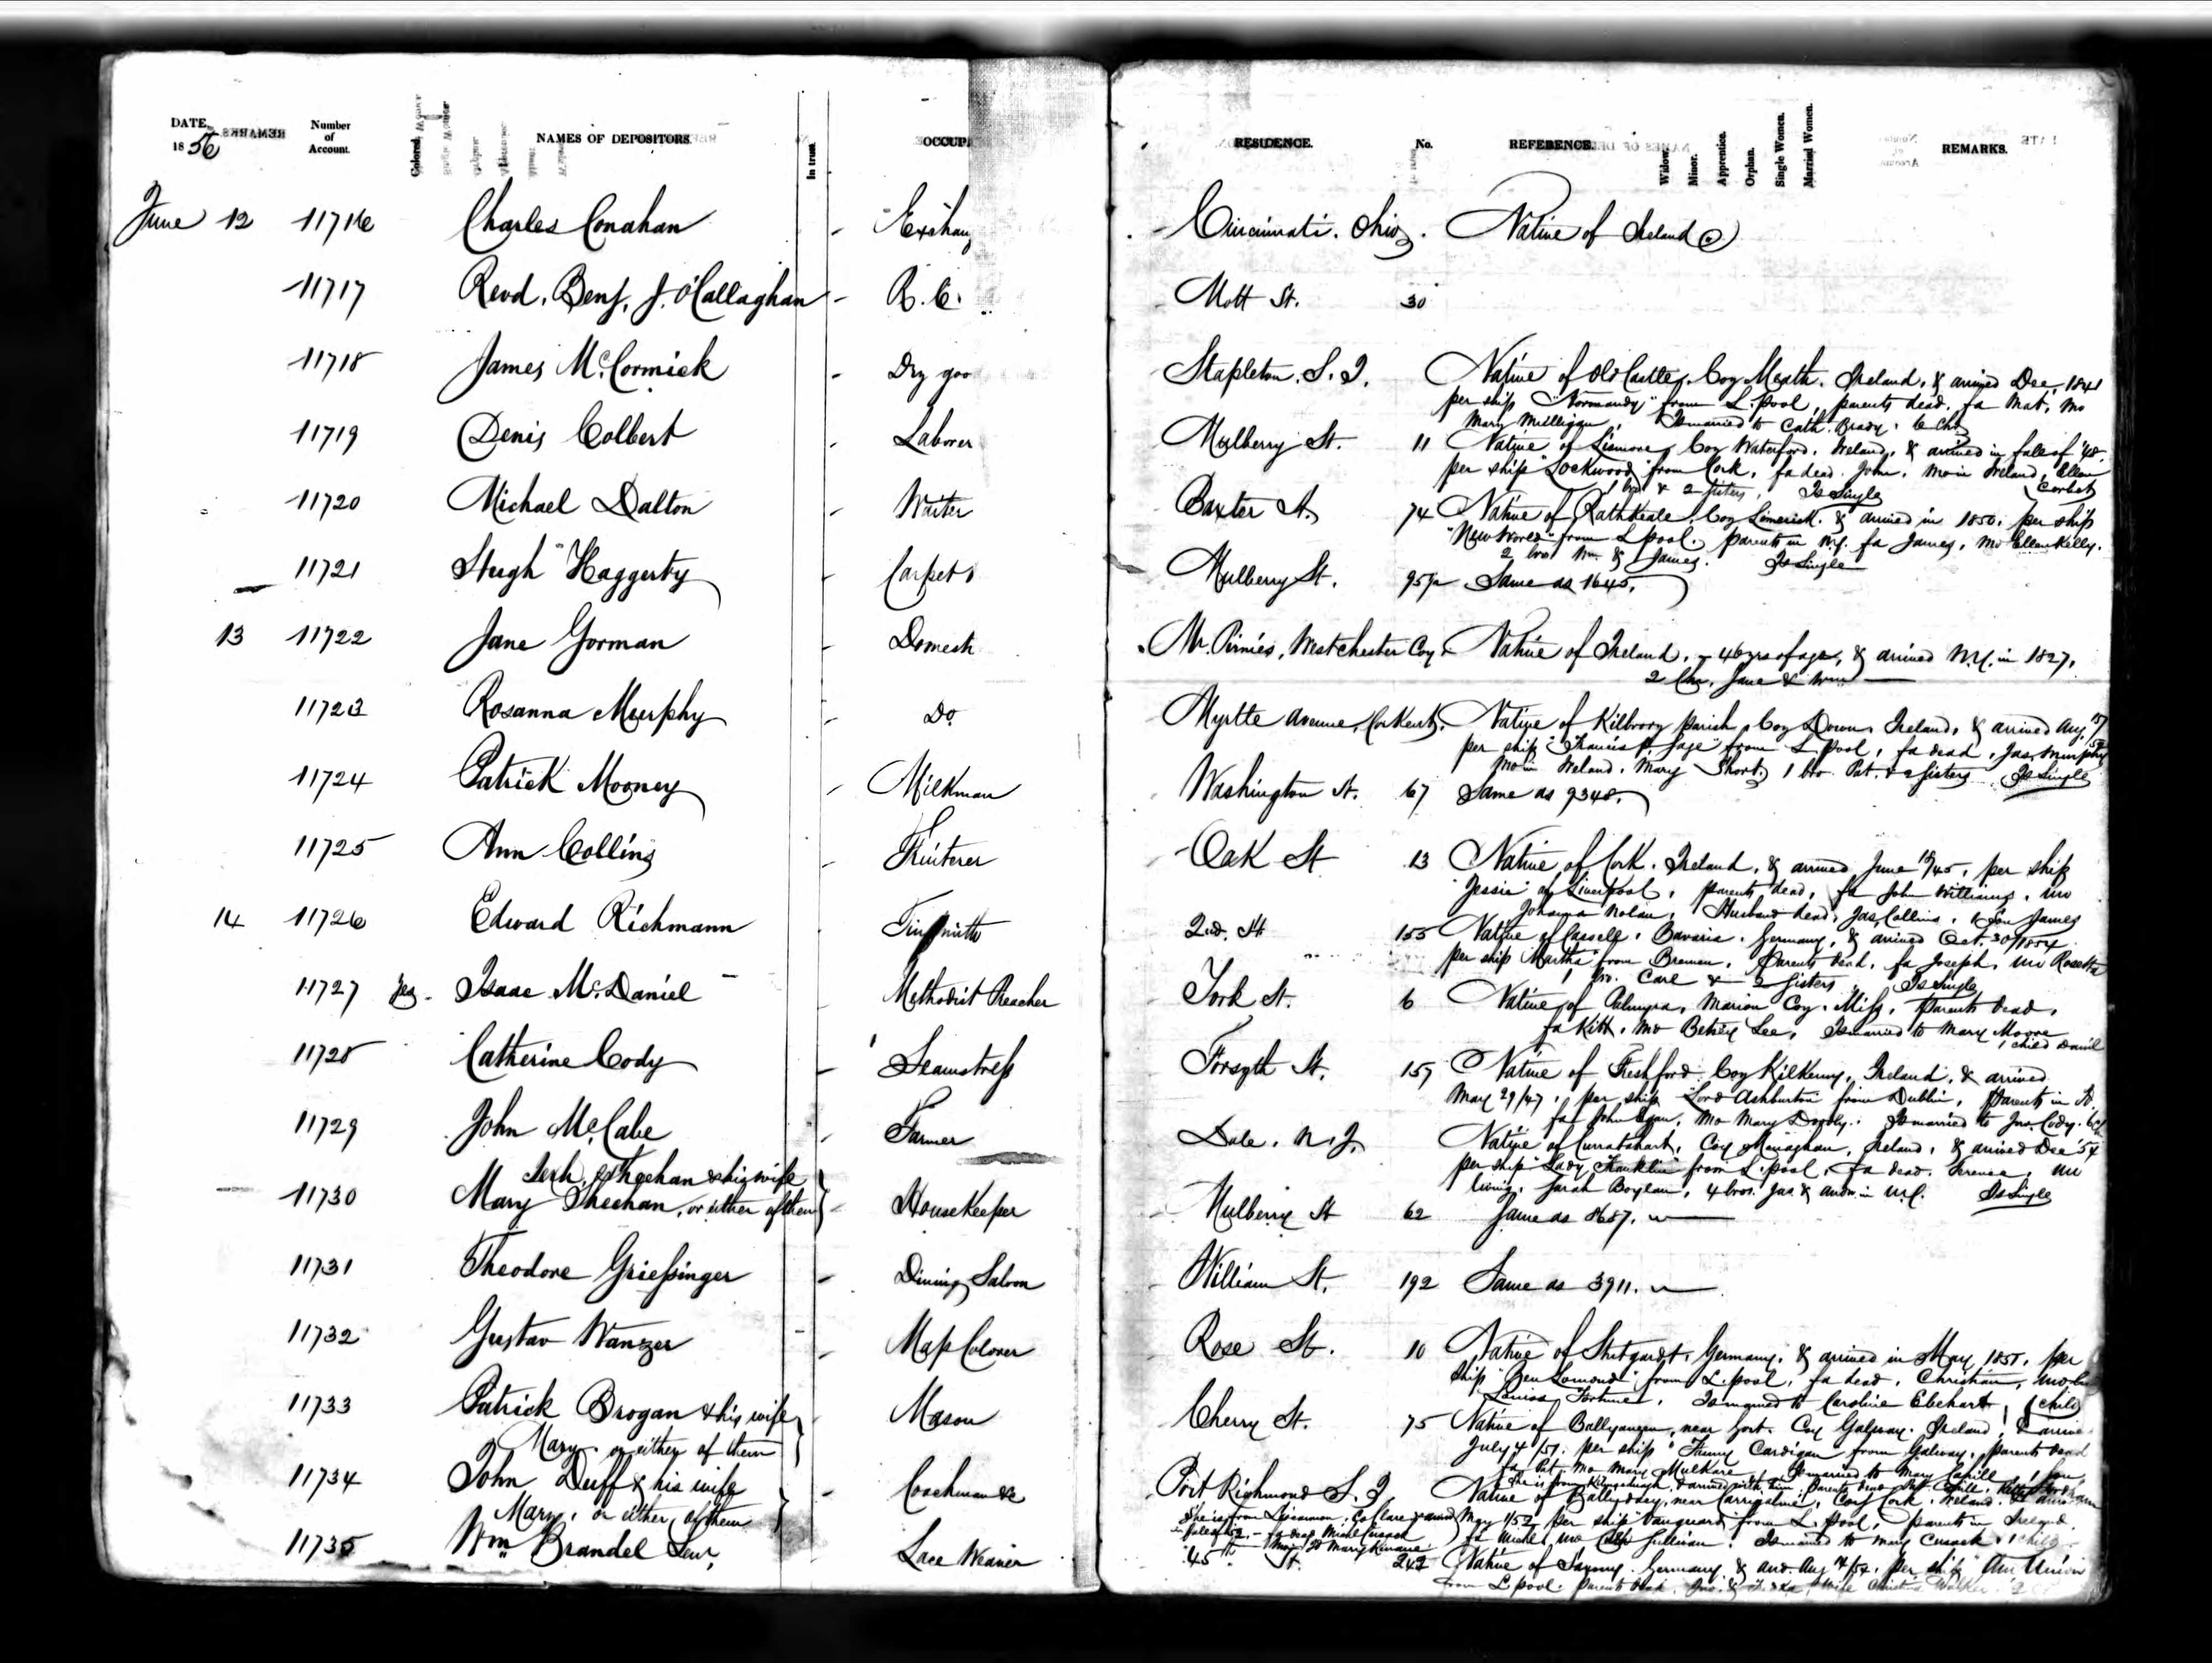 DATE.
1856
Number
of
Account.
Colored.
NAMES OF DEPOSITORS
In trust.
OCCUP
RESIDENCE.
No.
REFERENCE.
Widow.
Minor.
Apprentice.
Orphan.
Single Women.
Married Women.
REMARKS.
June 12 11716 Charles Conahan - Exchan Cincinnati. Ohio. Native of Ireland
11717 Revd. Benj. J. O'Callaghan - R. C. Mott St. 30
11718 James McCormick - Dry goo Stapleton. S. I. Native of Old Castle, Coy Meath. Ireland, & arrived Dec. 1841
per ship "Normandy" from L.pool, parents dead. fa Mat, mo
Mary Mulligan, Is married to Cath. Brady. 6 Chn
11719 Denis Colbert - Laborer Mulberry St. 11 Native of Lismore, Coy Waterford, Ireland, & arrived in fall of '48
per ship "Lockwood" from Cork, fa dead. John, mo in Ireland, Ellen
Corbet
1 bro & 2 sisters, Is Single
11720 Michael Dalton - Waiter Baxter St. 74 Native of RathKeale, Coy Limerick. & arrived in 1850. per ship
"New World" from L.pool. parents in N.Y. fa James, mo Ellen Kelly.
2 bros Wm & James. Is Single
11721 Hugh Haggerty - Carpet Mulberry St. 95½ Same as 1645.
13 11722 Jane Gorman - Domesti Mr. Pirnies, Westchester Coy. Native of Ireland, - 46 yrs of age, & arrived N.Y. in 1827.
2 Chn. Jane & Wm
11723 Rosanna Murphy - Do. Myrtle Avenue, Native of Kilbrony parish, Coy Down, Ireland, & arrived Aug.
per ship "Francis P. Sage" from L.pool, fa dead, Jas. Murphy
mo in Ireland, Mary Short, 1 bro Pat. & 2 sisters Is Single
11724 Patrick Mooney - Milkman Washington St. 67 Same as 9348.
11725 Ann Collins - Fruiterer Oak St 13 Native of Cork. Ireland, & arrived June 15/45, per ship
"Jessie" of Liverpool, parents dead, fa John Williams, mo
Johanna Nolan, Husband dead, Jas. Collins, 1 Son James
14 11726 Edward Richmann - Tinsmith 2nd. St 155 Native of Cassell, Bavaria. Germany, & arrived Oct. 30/1854
per ship Martha from Bremen, Parents dead, fa Joseph, mo Rosetta
1 bro. Carl & 2 Sisters Is Single
11727 Yes. Isaac McDaniel - Methodist Preacher York St. 6 Native of Palmyra, Marion Coy. Miss. Parents dead,
fa Kitt, mo Betsey Lee, Is married to Mary Moore
1 child David
11728 Catherine Cody - Seamstress Forsyth St. 159 Native of Freshford Coy Kilkenny, Ireland, & arrived
May 29/47, per ship Lord Ashburton from Dublin, Parents in
fa John Egan, mo Mary Dooly. Is married to Jno. Cody.
11729 John McCabe - Farmer Dale, N.J. Native of Coy Monaghan, Ireland, & arrived Dec '54
per ship "Lady Franklin" from L.pool, fa dead. Terence, mo
living. Sarah Boylan, 4 bros. Jas & Andw. in N.Y. Is Single
Sheehan & his wife
11730 Mary Sheehan, or either of them - HouseKeeper Mulberry St 62 Same as 8687.
11731 Theodore Griessinger - Dining Saloon William St. 192 Same as 3911.
11732 Gustav Wanzer - Map Colorer Rose St. 10 Native of Stutgardt, Germany, & arrived in May, 1855, per
ship "Ben Lomond" from L.pool, fa dead, Christian, mo
Louisa Is married to Caroline Ebehart, 1 child
11733 Patrick Brogan & his wife - Mason Cherry St. 75 Native of near Gort. Coy Galway. Ireland, &
Mary. or either of them
July 4/51. per ship "Fanny Cardigan from Galway, parents dead
fa Pat mo Mary Mulkare Is married to Mary Cahill 1 Son
11734 John Duff & his wife - Coachman &c Port Richmond S. I. Native of near Carrigaline, Coy Cork. Ireland.
Mary, or either of them
May 1/52, per ship "Vanguard" from L.pool, parents in Ireland.
fa Michl, mo Cath Sullivan. Is married to Mary Cusack. 1 child
11735 Wm Brandel Senr. - Lace Weaver 45th St. 242 Native of Saxony. Germany, & arr. Aug 14/54, per ship "Am Union
from L.pool. Parents dead.